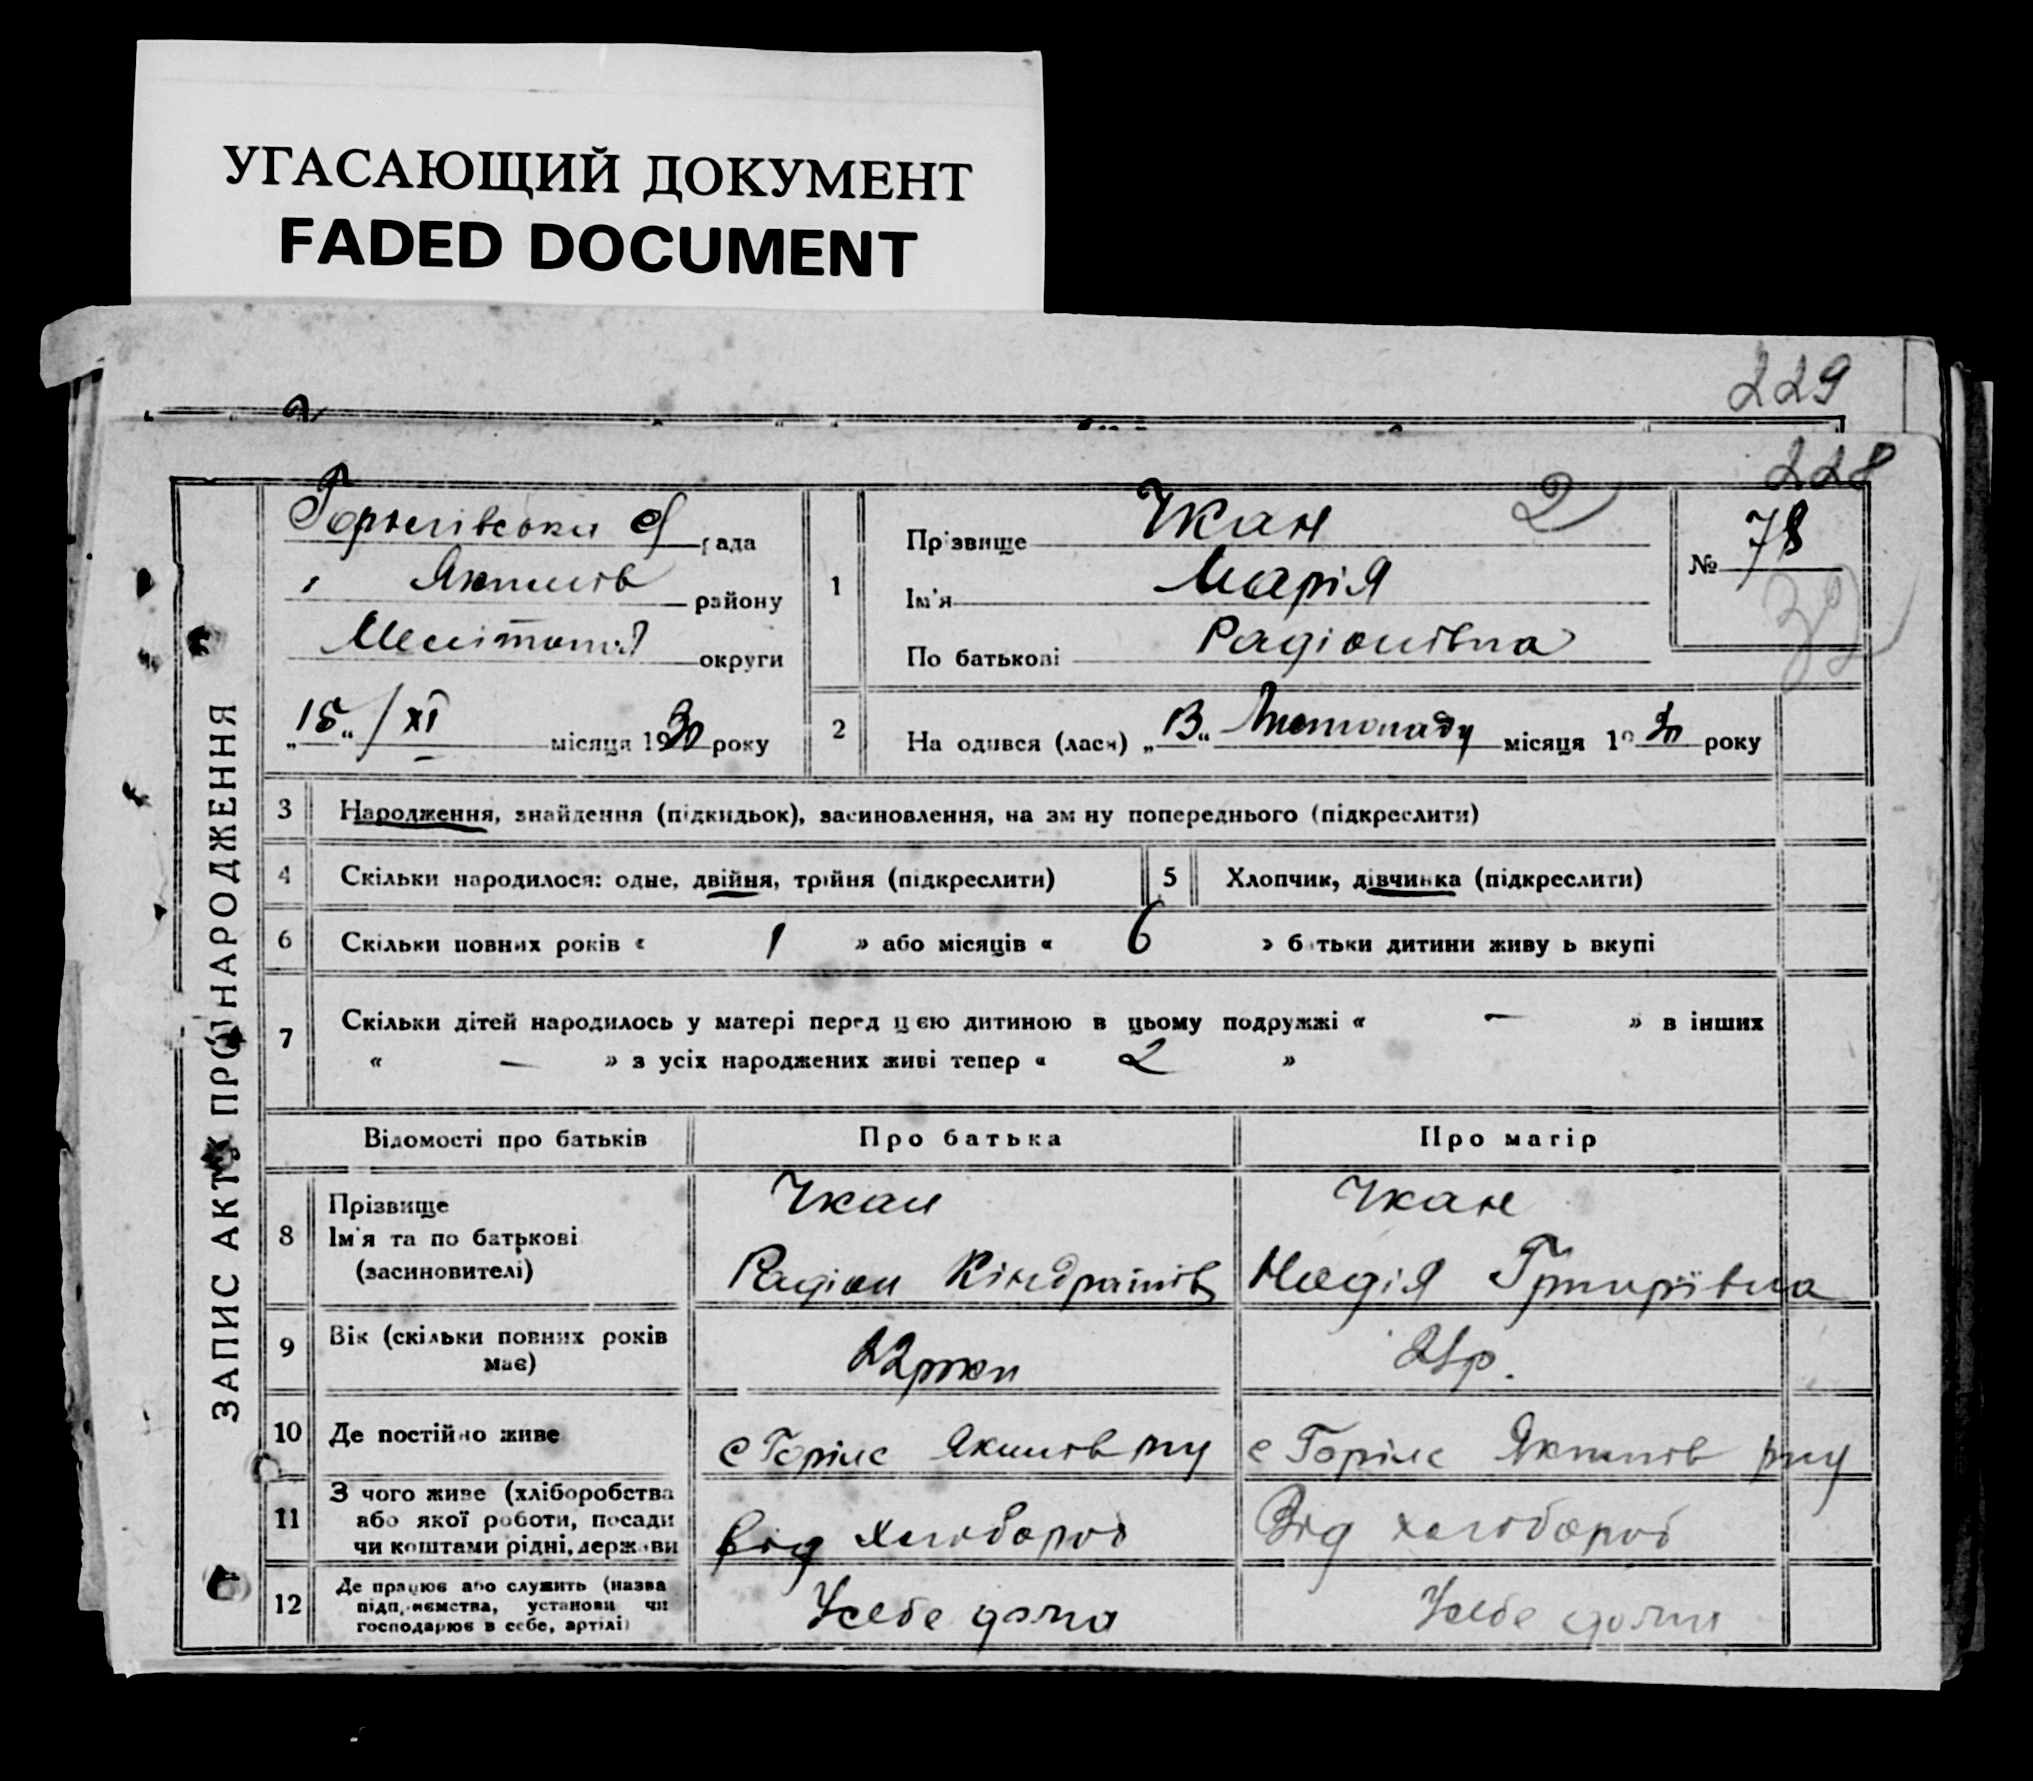 УГАСАЮЩИЙ ДОКУМЕНТ
FADED DOCUMENT
229
228
ЗАПИС АКТУ ПРО НАРОДЖЕННЯ
рада
Якимів району
округи
„15“ / XI місяця 1930 року
1
Прізвище Чкан 2
Ім'я Марія
По батькові Радіонівна
№ 78
32
2
На одився (лася) „13“ Листопаду місяця 1930 року
3 Народження, знайдення (підкидьок), засиновлення, на зм ну попереднього (підкреслити)
4 Скільки народилося: одне, двійня, трійня (підкреслити)
5 Хлопчик, дівчинка (підкреслити)
6 Скільки повних років « 1 » або місяців « 6 » батьки дитини живу ь вкупі
7 Скільки дітей народилось у матері перед цією дитиною в цьому подружжі « — » в інших
« — » з усіх народжених живі тепер « 2 »
Відомості про батьків Про батька Про матір
8 Прізвище
Ім'я та по батькові
(засиновителі)
Чкан
Радіон Кіндратів
Чкан
Надія Григорівна
9 Вік (скільки повних років
має)
22 роки
21 р.
10 Де постійно живе
с Горіле Якимів рну
с Горіле Якимів рну
11 З чого живе (хліборобства
або якої роботи, посади
чи коштами рідні, держави
Від хлібороб
Від хлібороб
12 Де працює або служить (назва
підприємства, установи чи
господарює в себе, артілі)
У себе дома
У себе дома